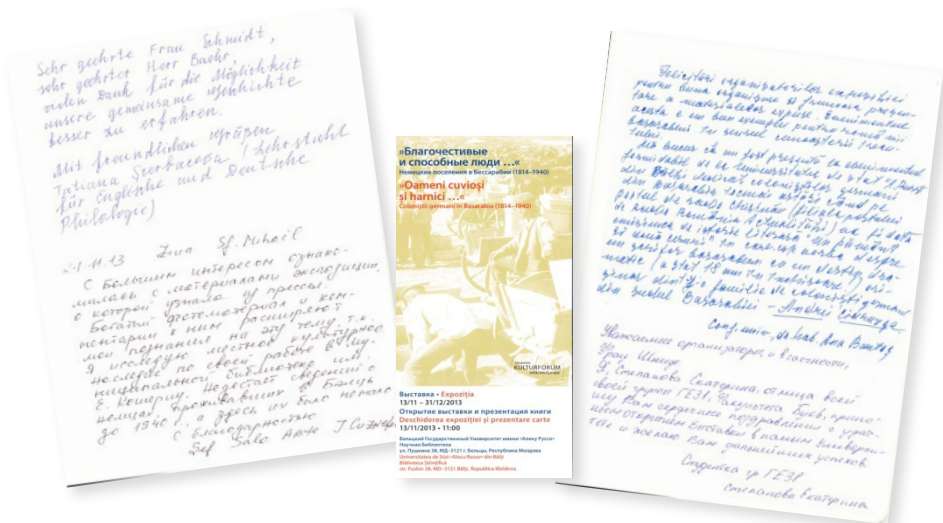 Sehr geehrte Frau Schmidt,
sehr geehrter Herr Baehr,
vielen Dank für die Möglichkeit
unsere gemeinsame Geschichte
besser zu erfahren.
Mit freundlichen Grüßen
Tatiana (Lehrstuhl
für Englische und Deutsche
Philologie)
21.11.13 Ziua Sf. Mihail
С большим интересом ознако-
милась с материалами экспозиции,
о которой узнала из прессы.
Богатый фотоматериал и ком-
ментарии к ним расширяют
мои познания на эту тему, т.к.
Я исследую местное культурное
наследие по своей работе в Му-
ниципальной библиотеке им.
Е. Кошериу. Недостает сведений о
немцах, проживавших в Бельцах
до 1940 г., а здесь их было немало
С благодарностью
Șef Sala Arte
»Благочестивые
и способные люди …«
Немецкие поселения в Бессарабии (1814–1940)
»Oameni cuvioși
și harnici …«
Coloniștii germani în Basarabia (1814–1940)
KULTURFORUM
Выставка • Expoziția
13/11 – 31/12/2013
Открытие выставки и презентация книги
Deschiderea expoziției și prezentare carte
13/11/2013 • 11:00
Бельцкий Государственный Университет имени «Алеку Руссо»
Научная библиотека
ул. Пушкина 38, MD-3121 г. Бельцы, Республика Молдова
Universitatea de Stat «Alecu Russo» din Bălți
Biblioteca Științifică
str. Pușkin 38, MD-3121 Bălți, Republica Moldova
Felicitări organizatorilor expoziției
pentru buna organizare și frumoasa prezen-
tare a materialelor expuse. Evenimentul
acesta e un bun exemplu pentru
basarabeni în sensul cunoașterii trecu-
tului.
Mă bucur că am fost prezentă la evenimentul
formidabil de la Universitatea de Stat A. Russo
din Bălți dedicat coloniștilor germani
din Basarabia tocmai astăzi când pe
postul de radio Chișinău (filiala postului
de radio România Actualități) va fi dată
emisiunea de istorie literară "Un pământ
și două ceruri" în care voi vorbi despre
un scriitor basarabean cu un destin dra-
matic (a stat 18 ani în închisoare) ori-
ginar dintr-o familie de coloniști germani
din sudul Basarabiei - Andrei
Conf. univ., dr. hab. Ana Bantoș
Уважаемые организаторы, и в частности,
Фрау Шмидт.
Я, Степанова Екатерина, от лица всей
своей группы, Факультета Букв, прино-
шу Вам сердечные поздравления с удач-
ным открытием выставки в нашем Университе-
тете и желаю Вам дальнейших успехов.
Студентка гр.
Степанова Екатерина